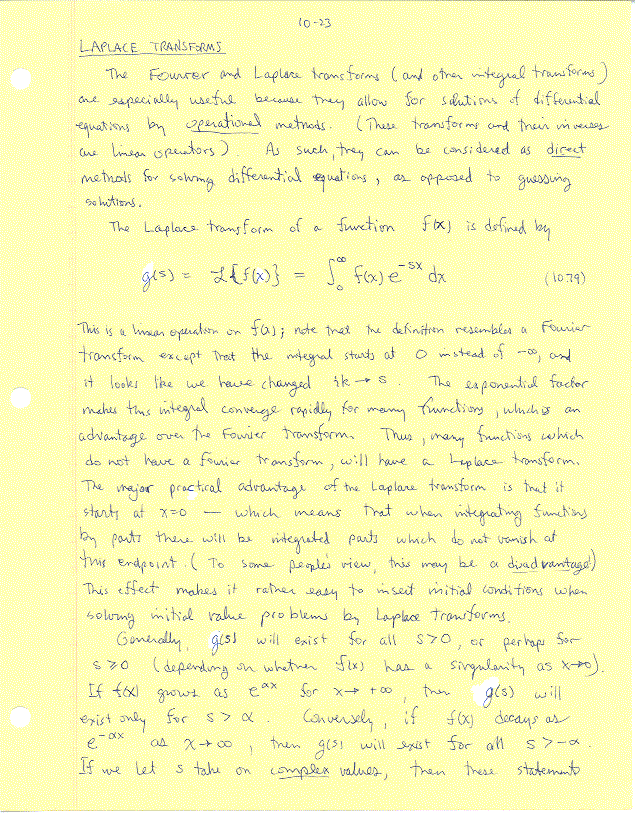 10-23
LAPLACE TRANSFORMS
The Fourier and Laplace transforms (and other integral transforms)
are especially useful because they allow for solutions of differential
equations by operational methods. (These transforms and their inverses
are linear operators). As such, they can be considered as direct
methods for solving differential equations, as opposed to guessing
solutions.
The Laplace transform of a function f(x) is defined by
g(s) = ℒ{f(x)} = ∫₀^∞ f(x) e^{-sx} dx (10.79)
This is a linear operation on f(x); note that the definition resembles a Fourier
transform except that the integral starts at 0 instead of -∞, and
it looks like we have changed ik → s. The exponential factor
makes this integral converge rapidly for many functions, which is an
advantage over the Fourier transform. Thus, many functions which
do not have a Fourier transform, will have a Laplace transform.
The major practical advantage of the Laplace transform is that it
starts at x=0 — which means that when integrating functions
by parts there will be integrated parts which do not vanish at
this endpoint. (To some people's view, this may be a disadvantage!)
This effect makes it rather easy to insert initial conditions when
solving initial value problems by Laplace transforms.
Generally, g(s) will exist for all s>0, or perhaps for
s≥0 (depending on whether f(x) has a singularity as x→0).
If f(x) grows as e^{αx} for x→+∞, then g(s) will
exist only for s>α. Conversely, if f(x) decays as
e^{-αx} as x→∞, then g(s) will exist for all s>-α.
If we let s take on complex values, then these statements